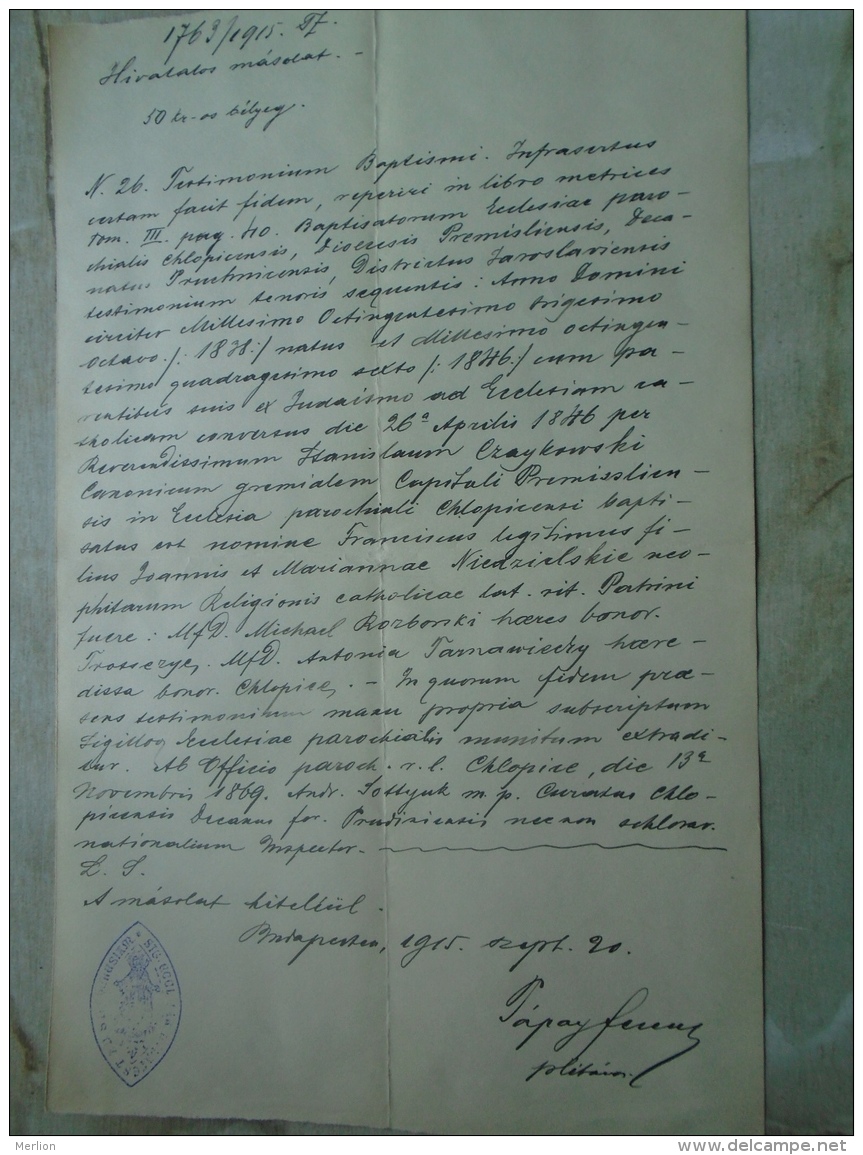 1763/1915.
Hivatalos másolat. -
50 kr-os bélyeg.
N. 26. Testimonium Baptismi. Infrasertus
certam facit fidem, reperiri in libro metrices
tom. III. pag. 40. Baptisatorum Ecclesiae paro-
chialis Chlopicensis, Dioecesis Premisliensis, Deca-
natus Pruchnicensis, Districtus Jaroslaviensis
testimonium tenoris sequentis: Anno Domini
circiter Millesimo Octingentesimo trigesimo
octavo /: 1838 :/ natus et Millesimo octingen-
tesimo quadragesimo sexto /: 1846 :/ cum pa-
rentibus suis ex Judaismo ad Ecclesiam ca-
tholicam conversus die 26ª Aprilis 1846 per
Reverendissimum Stanislaum Czaykowski
Canonicum gremialem Capituli Premislien-
sis in Ecclesia parochiali Chlopicensi bapti-
satus est nomine Franciscus legitimus fi-
lius Joannis et Mariannae Niedzielskie neo-
phitarum Religionis catholicae lat. rit. Patrini
fuere: MfD. Michael Rozborski haeres bonor.
MfD. Antonia Tarnawiecky haere-
dissa bonor. Chlopice. - In quorum fidem prae-
sens testimonium manu propria subscriptum
Sigilloq Ecclesiae parochialis munitum extradi-
tur. Ab Officio paroch. r. l. Chlopice, die 13ª
Novembris 1869. Andr. m. p. Curatus Chlo-
picensis Decanus for. nec non
nationalium Inspector.
L. S.
A másolat hiteléül.
Budapesten, 1915. szept. 20.
Pápay Ferenc
plébános.
SIG. ECCL.
Merlion
www.delcampe.net